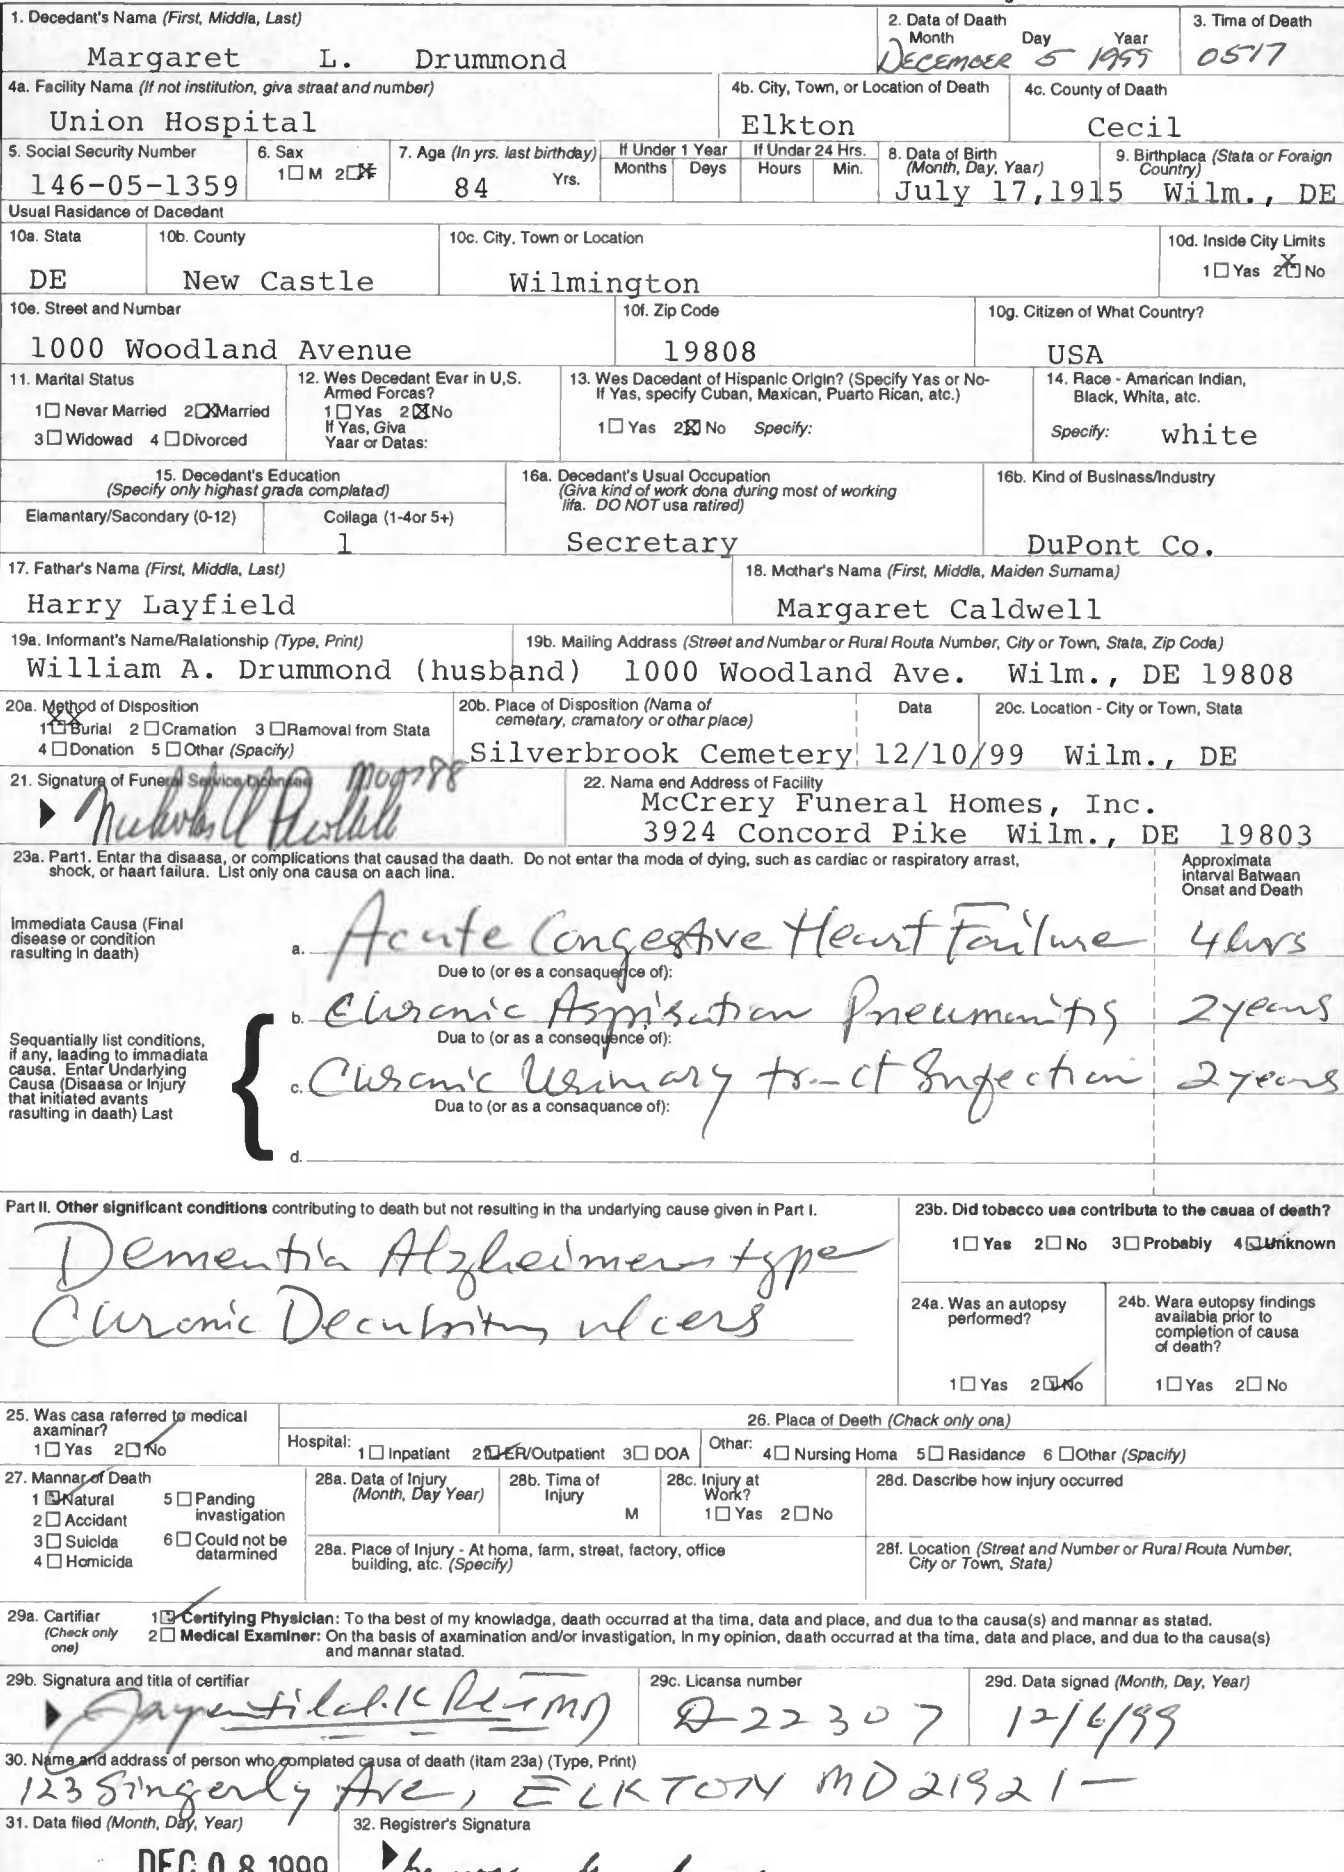 1. Decedant's Name (First, Middla, Last)
2. Data of Daath
3. Tima of Death
Month Day Yaar
Margaret L. Drummond
DECEMBER 5 1999
0517
4a. Facility Nama (If not institution, giva straat and number)
4b. City, Town, or Location of Death
4c. County of Daath
Union Hospital
Elkton
Cecil
5. Social Security Number
6. Sax
1 M 2 F
7. Age (In yrs. last birthday)
If Under 1 Year
Months Deys
If Undar 24 Hrs.
Hours Min.
8. Data of Birth
(Month, Day, Yaar)
9. Birthplaca (Stata or Foraign
Country)
146-05-1359
84 Yrs.
July 17,1915
Wilm., DE
Usual Rasidance of Dacedant
10a. Stata
10b. County
10c. City, Town or Location
10d. Insida City Limits
1 Yas 2 X No
DE
New Castle
Wilmington
10e. Street and Numbar
10f. Zip Code
10g. Citizen of What Country?
1000 Woodland Avenue
19808
USA
11. Marital Status
1 Nevar Married 2 X Married
3 Widowad 4 Divorced
12. Wes Decedant Evar in U,S.
Armed Forcas?
1 Yas 2 X No
If Yas, Giva
Yaar or Datas:
13. Wes Dacedant of Hispanic Origin? (Specify Yas or No-
If Yas, specify Cuban, Maxican, Puarto Rican, atc.)
1 Yas 2 X No Specify:
14. Race - Amarican Indian,
Black, Whita, atc.
Specify: white
15. Decedant's Education
(Spacify only highast grada complatad)
Elamantary/Sacondary (0-12)
Collaga (1-4or 5+)
1
16a. Decedant's Usual Occupation
(Giva kind of work dona during most of working
lifa. DO NOT usa ratired)
Secretary
16b. Kind of Businass/Industry
DuPont Co.
17. Fathar's Nama (First, Middla, Last)
18. Mothar's Nama (First, Middla, Maiden Surnama)
Harry Layfield
Margaret Caldwell
19a. Informant's Nama/Ralationship (Type, Print)
19b. Mailing Address (Street and Numbar or Rural Routa Number, City or Town, Stata, Zip Coda)
William A. Drummond (husband)
1000 Woodland Ave. Wilm., DE 19808
20a. Method of Disposition
1 XX Burial 2 Cramation 3 Ramoval from Stata
4 Donation 5 Othar (Spacify)
20b. Placa of Disposition (Nama of
cemetary, cramatory or othar place)
Data
20c. Location - City or Town, Stata
Silverbrook Cemetery
12/10/99
Wilm., DE
21. Signatura of Funeral Service Licensee
22. Nama end Address of Facility
McCrery Funeral Homes, Inc.
3924 Concord Pike Wilm., DE 19803
23a. Part1. Enter tha disaasa, or complications that causad tha daath. Do not entar tha moda of dying, such as cardiac or raspiratory arrast,
shock, or haart failura. List only ona causa on aach lina.
Approximata
intarval Batwaan
Onsat and Death
Immediata Causa (Final
disease or condition
rasulting in daath)
a. Acute Congestive Heart Failure 4 hrs
Due to (or es a consaquence of):
b. Chronic Aspiration Pneumonitis 2 years
Dua to (or as a consequence of):
Sequentially list conditions,
if any, laading to immadiata
causa. Enter Undarlying
Causa (Disaasa or Injury
that initiated avants
rasulting in daath) Last
c. Chronic Urinary tract Infection 2 years
Dua to (or as a consaquance of):
d.
Part II. Other significant conditions contributing to death but not resulting in tha undarlying cause given in Part I.
Dementia Alzheimers type
Chronic Decubitus ulcers
23b. Did tobacco uaa contributa to the cauaa of death?
1 Yas 2 No 3 Probably 4 Unknown
24a. Was an autopsy
performed?
1 Yas 2 No
24b. Wara eutopsy findings
availabia prior to
complation of causa
of death?
1 Yas 2 No
25. Was casa raferred to medical
axaminar?
1 Yas 2 No
26. Placa of Deeth (Chack only ona)
Hospital: 1 Inpatient 2 ER/Outpatient 3 DOA
Othar: 4 Nursing Homa 5 Rasidance 6 Othar (Spacify)
27. Mannar of Death
1 Natural
2 Accidant
3 Suicida
4 Homicida
5 Panding
invastigation
6 Could not be
datarmined
28a. Data of Injury
(Month, Day Year)
28b. Tima of
Injury
M
28c. Injury at
Work?
1 Yas 2 No
28d. Dascribe how injury occurred
28a. Place of Injury - At homa, farm, streat, factory, office
building, atc. (Specify)
28f. Location (Straat and Number or Rural Routa Number,
City or Town, Stata)
29a. Cartifiar
(Check only
one)
1 Certifying Physician: To tha best of my knowladga, daath occurrad at tha tima, data and place, and dua to tha causa(s) and mannar as statad.
2 Medical Examiner: On tha basis of axamination and/or invastigation, in my opinion, daath occurrad at tha tima, data and place, and dua to tha causa(s)
and mannar statad.
29b. Signatura and titla of certifiar
29c. Licansa number
29d. Data signad (Month, Day, Year)
MD
D-22307
12/6/99
30. Name and addrass of parson who complated causa of death (itam 23a) (Type, Print)
123 Singerly Ave, ELKTON MD 21921
31. Data filad (Month, Day, Year)
32. Registrer's Signatura
DEC 08 1999